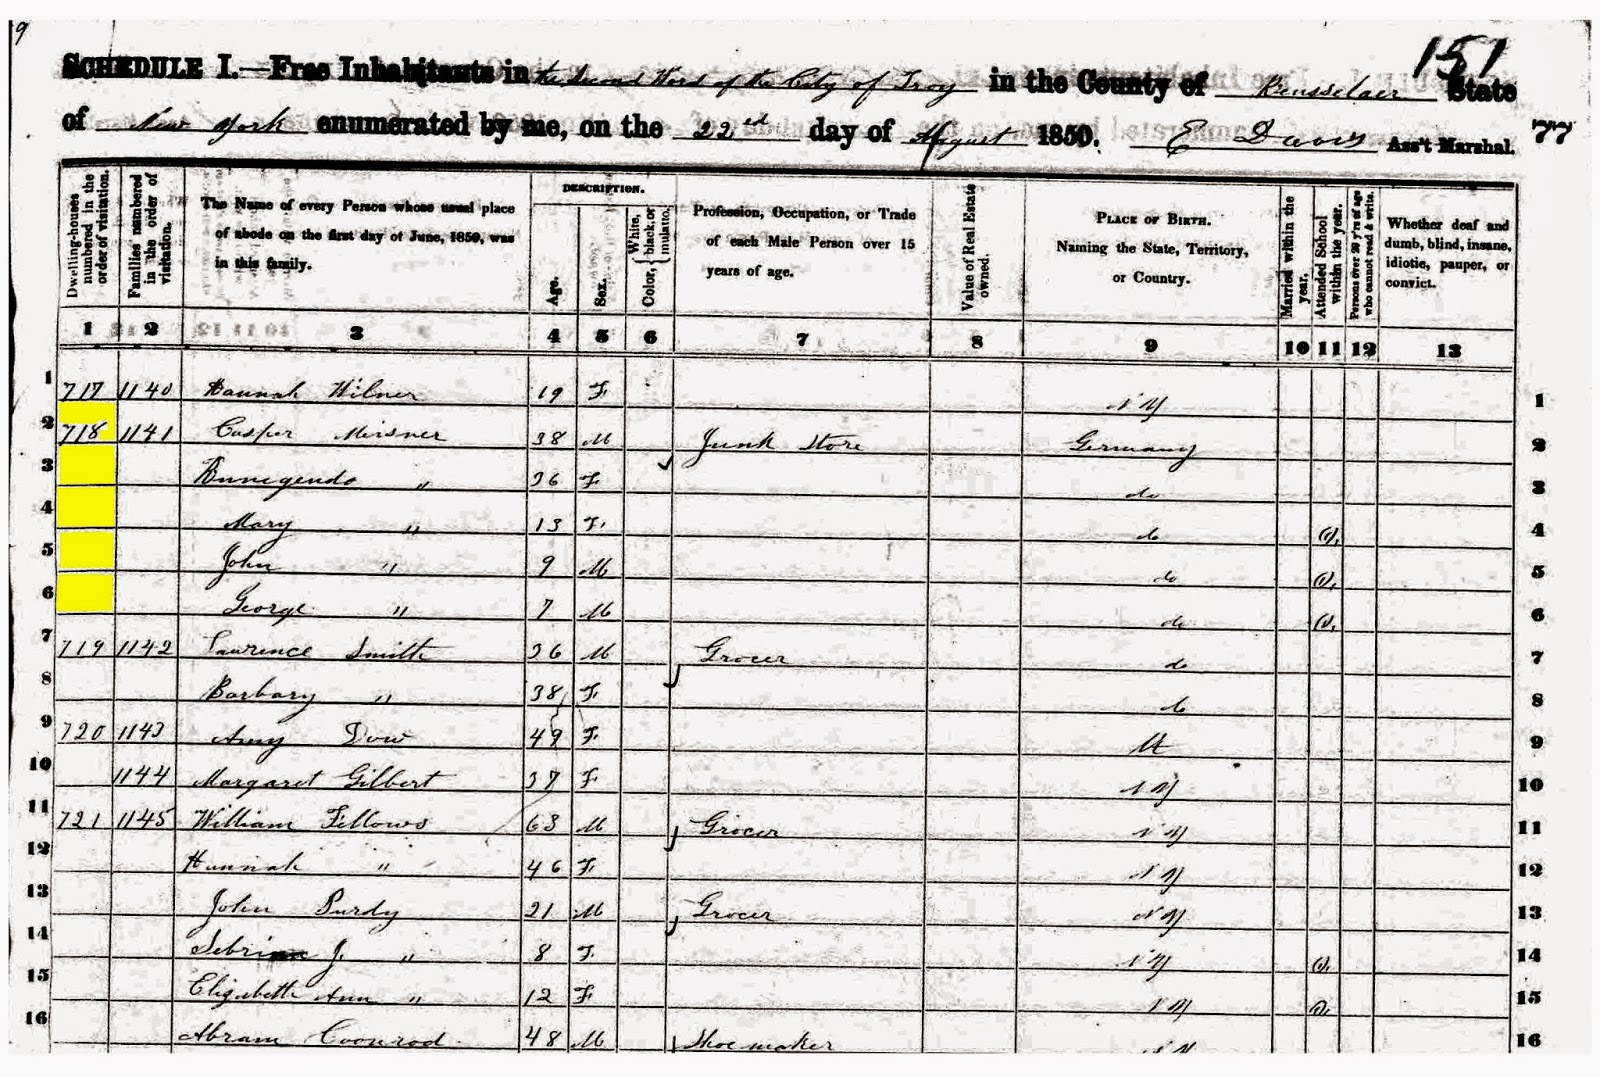 9
151
SCHEDULE I.—Free Inhabitants in the Second Ward of the City of Troy in the County of Rensselaer State
of New York enumerated by me, on the 22nd day of August 1850. E Davis Ass't Marshal. 77
Dwelling-houses numbered in the order of visitation.
Families numbered in the order of visitation.
The Name of every Person whose usual place of abode on the first day of June, 1850, was in this family.
DESCRIPTION.
Age.
Sex.
Color, { White, black, or mulatto.
Profession, Occupation, or Trade of each Male Person over 15 years of age.
Value of Real Estate owned.
PLACE OF BIRTH. Naming the State, Territory, or Country.
Married within the year.
Attended School within the year.
Persons over 20 y'rs of age who cannot read & write.
Whether deaf and dumb, blind, insane, idiotic, pauper, or convict.
1 2 3 4 5 6 7 8 9 10 11 12 13
1 717 1140 Hannah Wilner 19 F NY 1
2 718 1141 Casper Meisner 38 M Junk Store Germany 2
3 Kunegendo " 36 F do 3
4 Mary " 13 F do (1) 4
5 John " 9 M do (1) 5
6 George " 7 M do (1) 6
7 719 1142 Lawrence Smith 36 M Grocer do 7
8 Barbary " 38 F do 8
9 720 1143 Amy Dow 49 F Vt 9
10 1144 Margaret Gilbert 37 F NY 10
11 721 1145 William Fellows 63 M Grocer NY 11
12 Hannah " 46 F NY 12
13 John Purdy 21 M Grocer NY 13
14 Sebrina J. " 8 F NY (1) 14
15 Elizabeth Ann " 12 F NY (1) 15
16 Abram Coonrod 48 M Shoemaker NY 16